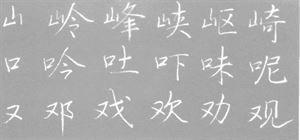 山 岭 峰 峡 岖 崎
口 吟 吐 吓 味 呢
又 邓 戏 欢 劝 观